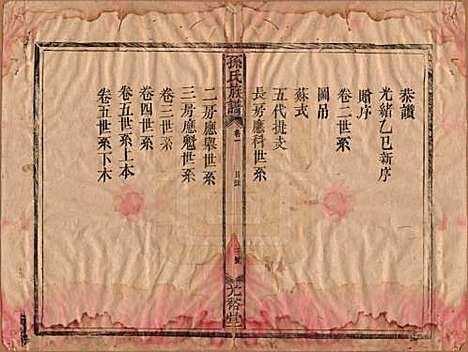 恭讀
光緒乙巳新序
贈序
卷二世系
圖吊
蘇式
五代提支
長房應科世系
孫氏族譜
卷一
目錄
三號
光裕堂
二房應舉世系
三房應魁世系
卷三世系
卷四世系
卷五世系上本
卷五世系下本